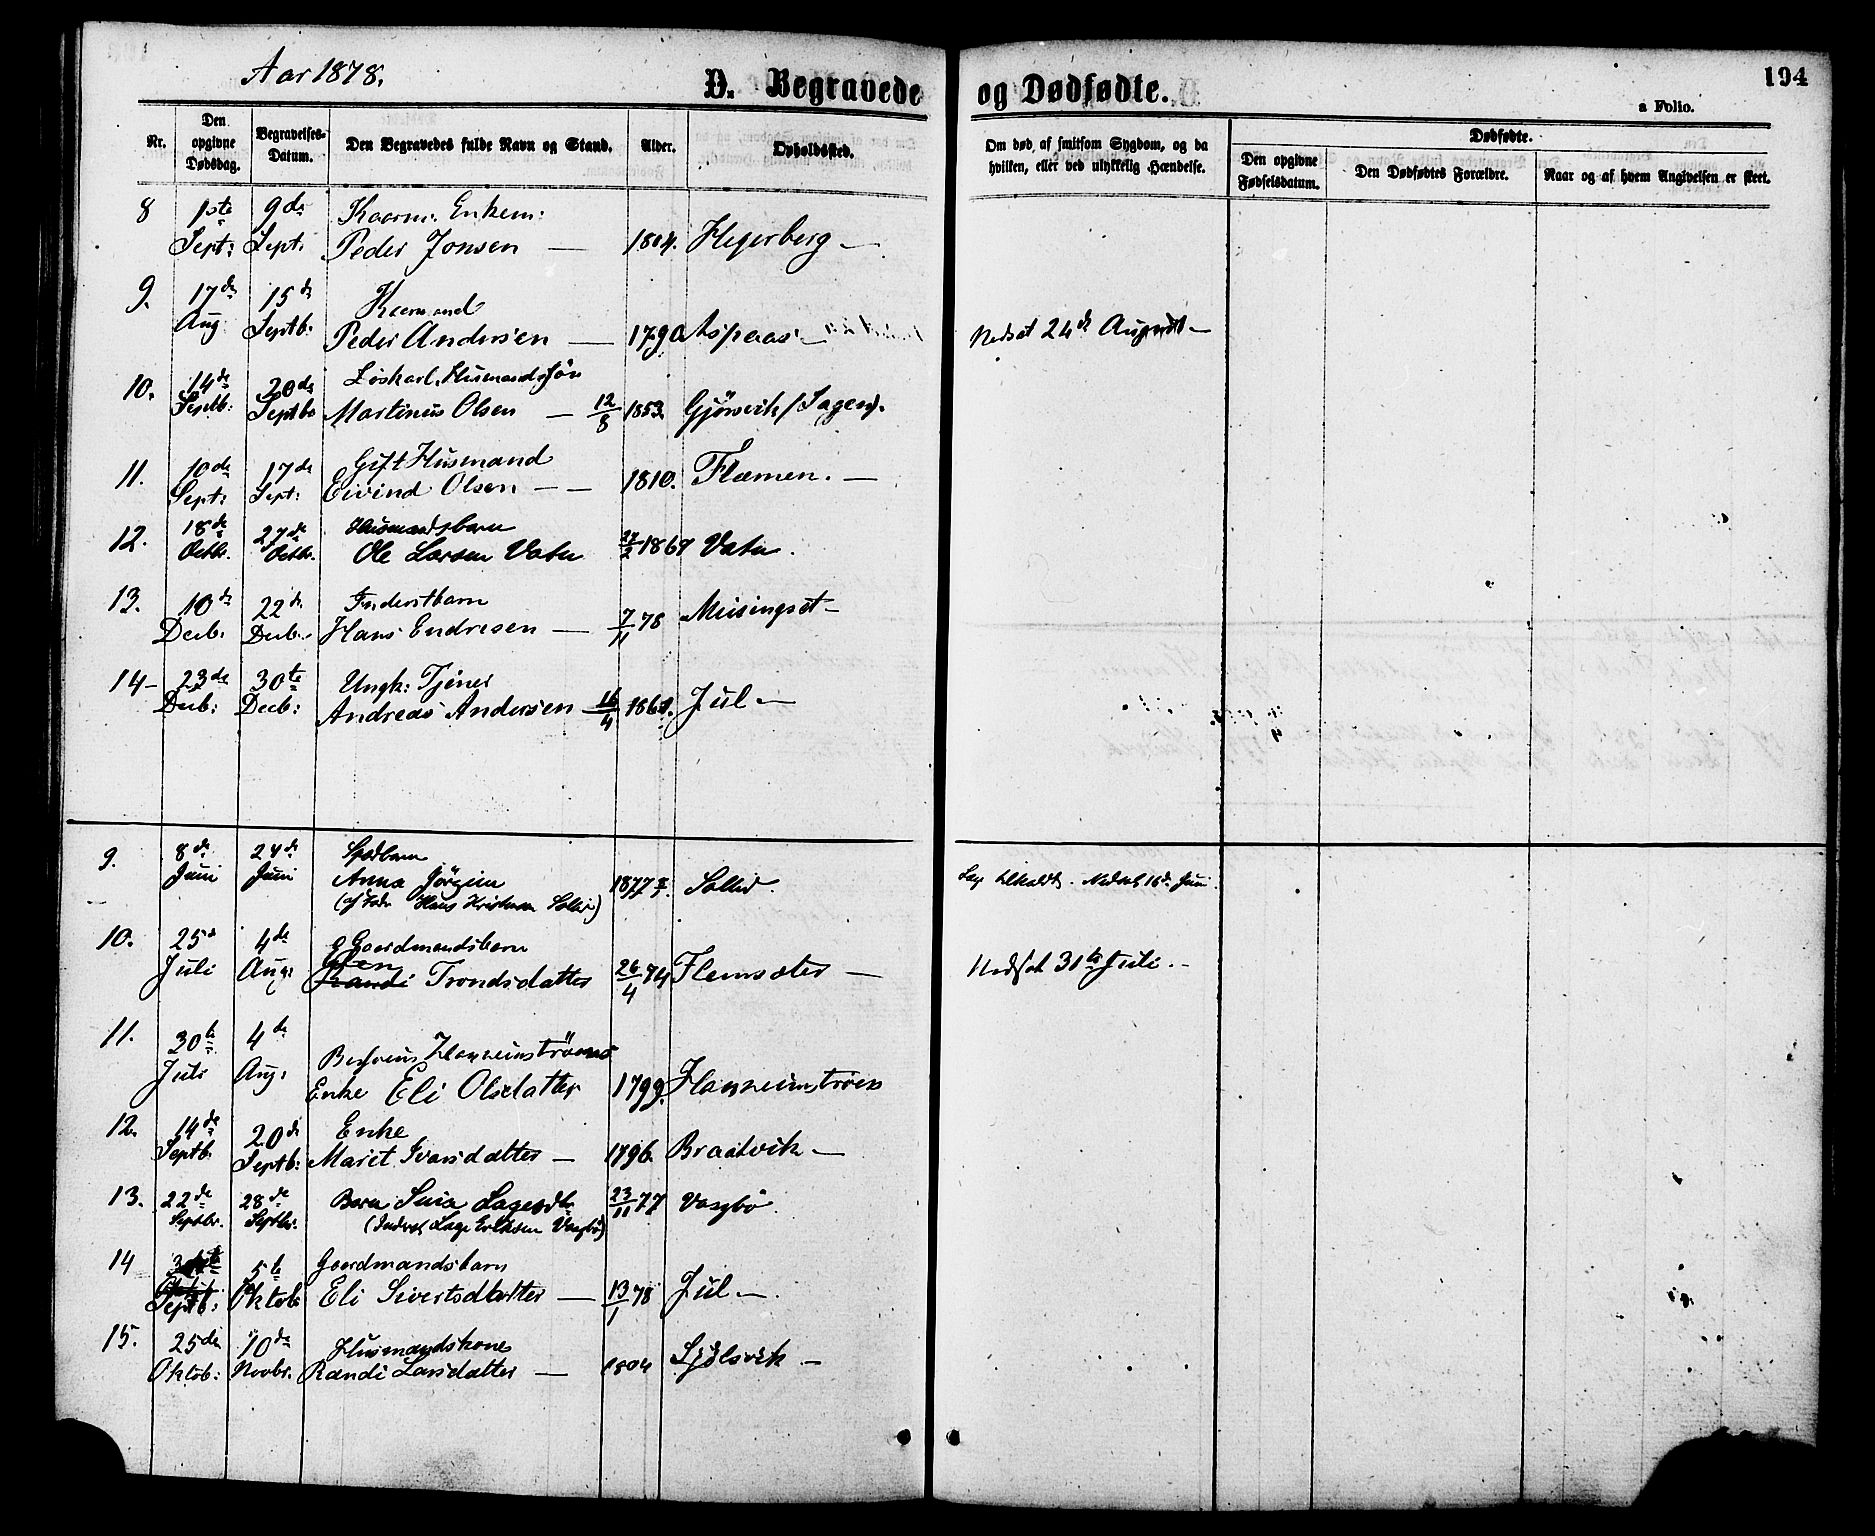 Aar 1878.
D. Begravede og Dødfødte.
194
a Folio.
Nr. Den opgivne Dødsdag. Begravelses-Datum. Den Begravedes fulde Navn og Stand. Alder. Opholdssted. Om død af smitsom Sygdom, og da hvilken, eller ved ulykkelig Hændelse. Dødfødte.
Den opgivne Fødselsdatum. Den Dødfødtes Forældre. Naar og af hvem Angivelsen er skeet.
8 1ste 9de Kaarm: Enkem:
Sept: Sept. Peder Jonsen — 1804. Hegerberg —
9. 17de 15de Kaarmand
Aug Septb. Peder Andersen — 1790 Aspaas — Nedsat 24de August —
10. 14de 20de Løskarl, Husmandssøn
Septb: Septbr Martinus Olsen — 12/8 1853. Gjörsvik (Sagen).
11. 10de 17de Gift Husmand
Sept: Sept: Eivind Olsen — — 1810. Flemen. —
12. 18de 27de Husmandsbarn
Octbr. Octbr. Ole Larsen Vatn 27/2 1867 Vatn.
13. 10de 22de Inderstbarn
Decb: Decb. Hans Endresen — 7/11 78 Meisingset —
14 — 23de 30te Ungk: Tjener
Decb: Decb: Andreas Andersen 16/4 1861. Jul —
9. 8de 24de Spædbarn
Juni Juni Anna Jörgine 1877 Sollid.
(af Fader Hans Kristian Sollid) Nedsat 16de Juni
10. 25de 4de Gaardmandsbarn
Juli Aug: Randi Trondsdatter 26/4 74 Flemsæter — Nedsat 31te Juli. —
11. 30te 4de
Juli Aug:
Enke Eli Olsdatter 1799.
12. 14de 20de Enke
Septb. Septb: Marit Ivarsdatter — 1796. Braatvik —
13. 22de 28de Barn Lagesdtr 23/11 77 Vaagbö
Septbr. Septbr. (Inderst Lage Eriksen Vaagbö)
14 5te Gaardmandsbarn
Septb: Oktob Eli Sivertsdtatter — 13/1 78 Jul —
15. 25de 10de Husmandskone
Oktob: Novbr. Randi Larsdatter — 1804 Sjölsvik —